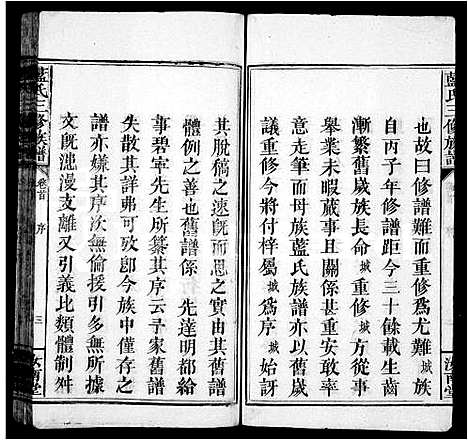 藍氏三修族譜
也故曰修譜難而重修爲尤難 城 族
自丙子年修譜距今三十餘載生齒
漸繁舊歲族長命 城 重修 城 因舊歲
舉業未暇蕆事且關係甚重安敢率
意走筆而母族藍氏族譜亦以舊歲
議重修今將付梓屬 城 爲序 城 始訝
汝南堂
其脫稿之速旣而思之實由其舊譜
體例之善也舊譜係 先達明部
事碧宰先生所纂其序云尋家舊譜
失散其詳弗可攷卽今族中僅存之
譜亦嫌其序次無倫援引無所據
文旣漶漫支離又引義比類體制舛
藍氏三修族譜 卷首 序 三 汝南堂